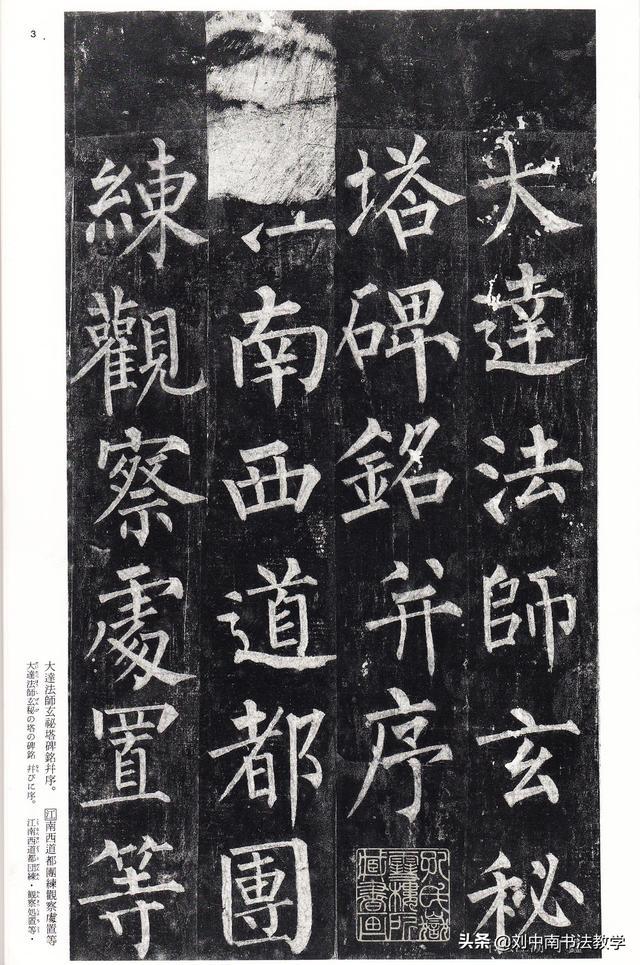 3
大達法師玄秘
塔碑銘并序
江南西道都團
練觀察處置等
大達法師玄祕塔碑銘幷序。
江南西道都團練觀察處置等
大達法師玄秘の塔の碑銘 幷びに序。
江南西道都団練・観察処置等・
头条 @刘中南书法教学